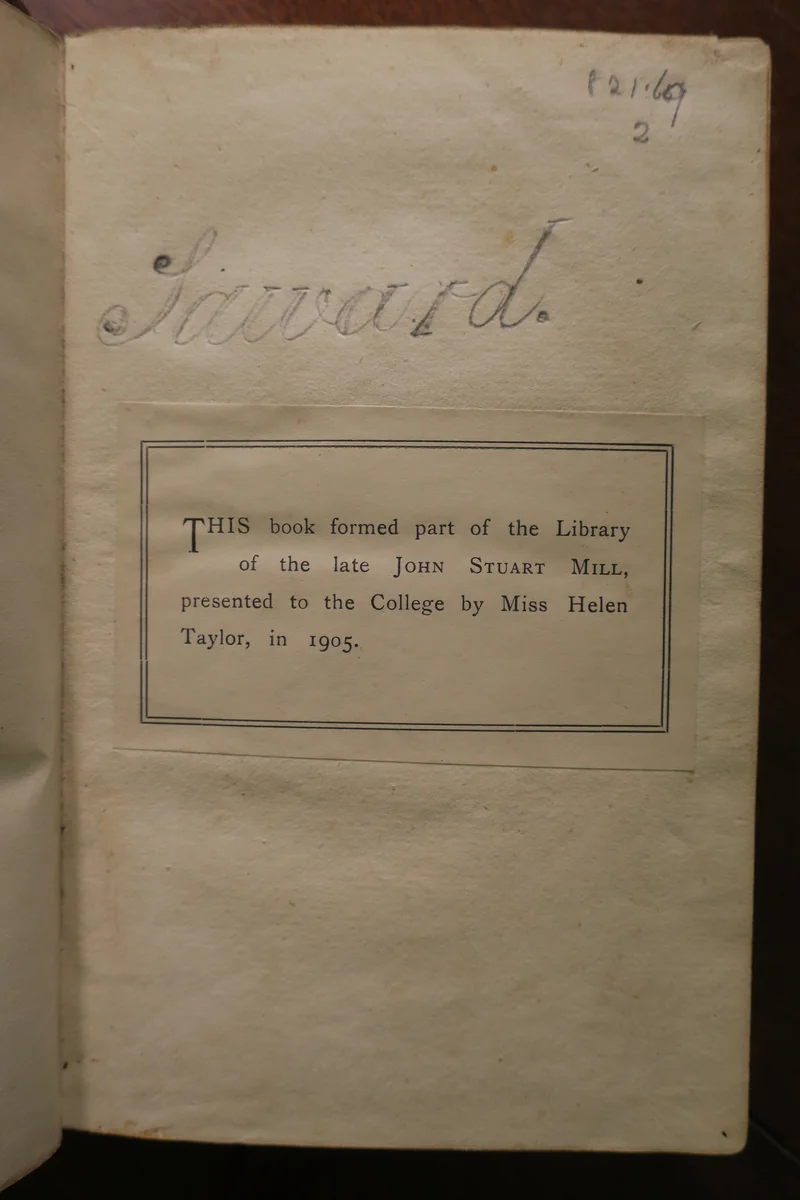 821.69
2
Saward.
THIS book formed part of the Library
of the late JOHN STUART MILL,
presented to the College by Miss Helen
Taylor, in 1905.